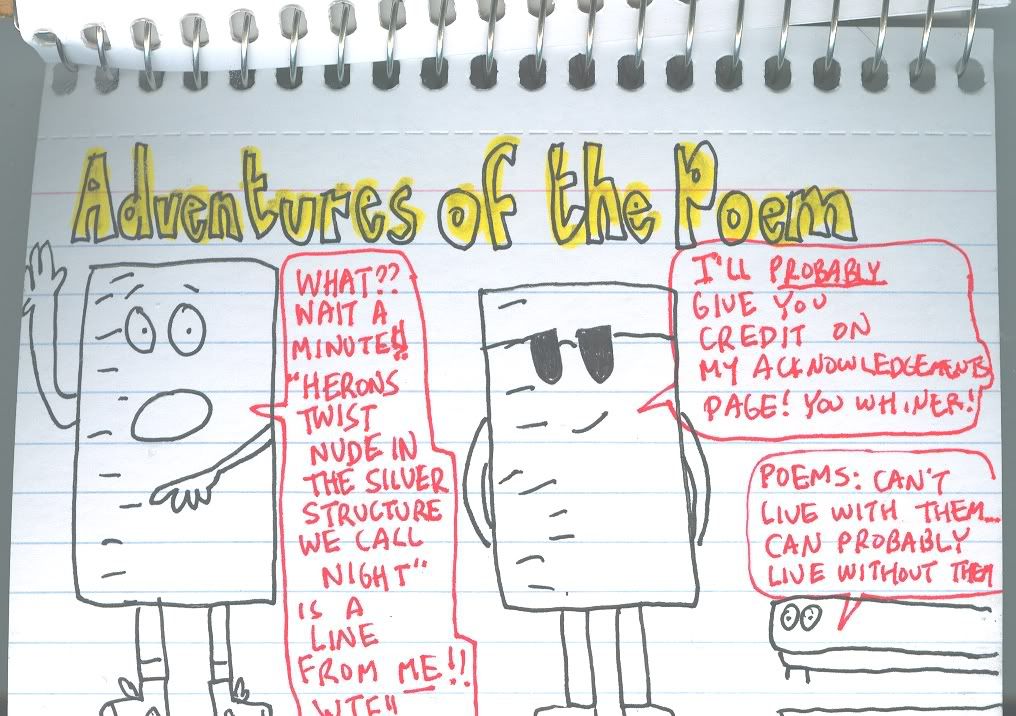 Adventures of the Poem
WHAT??
WAIT A
MINUTE!!
"HERONS
TWIST
NUDE IN
THE SILVER
STRUCTURE
WE CALL
NIGHT"
IS A
LINE
FROM ME!!
WTF!!
I'LL PROBABLY
GIVE YOU
CREDIT ON
MY ACKNOWLEDGEMENTS
PAGE! YOU WHINER!
POEMS: CAN'T
LIVE WITH THEM...
CAN PROBABLY
LIVE WITHOUT THEM